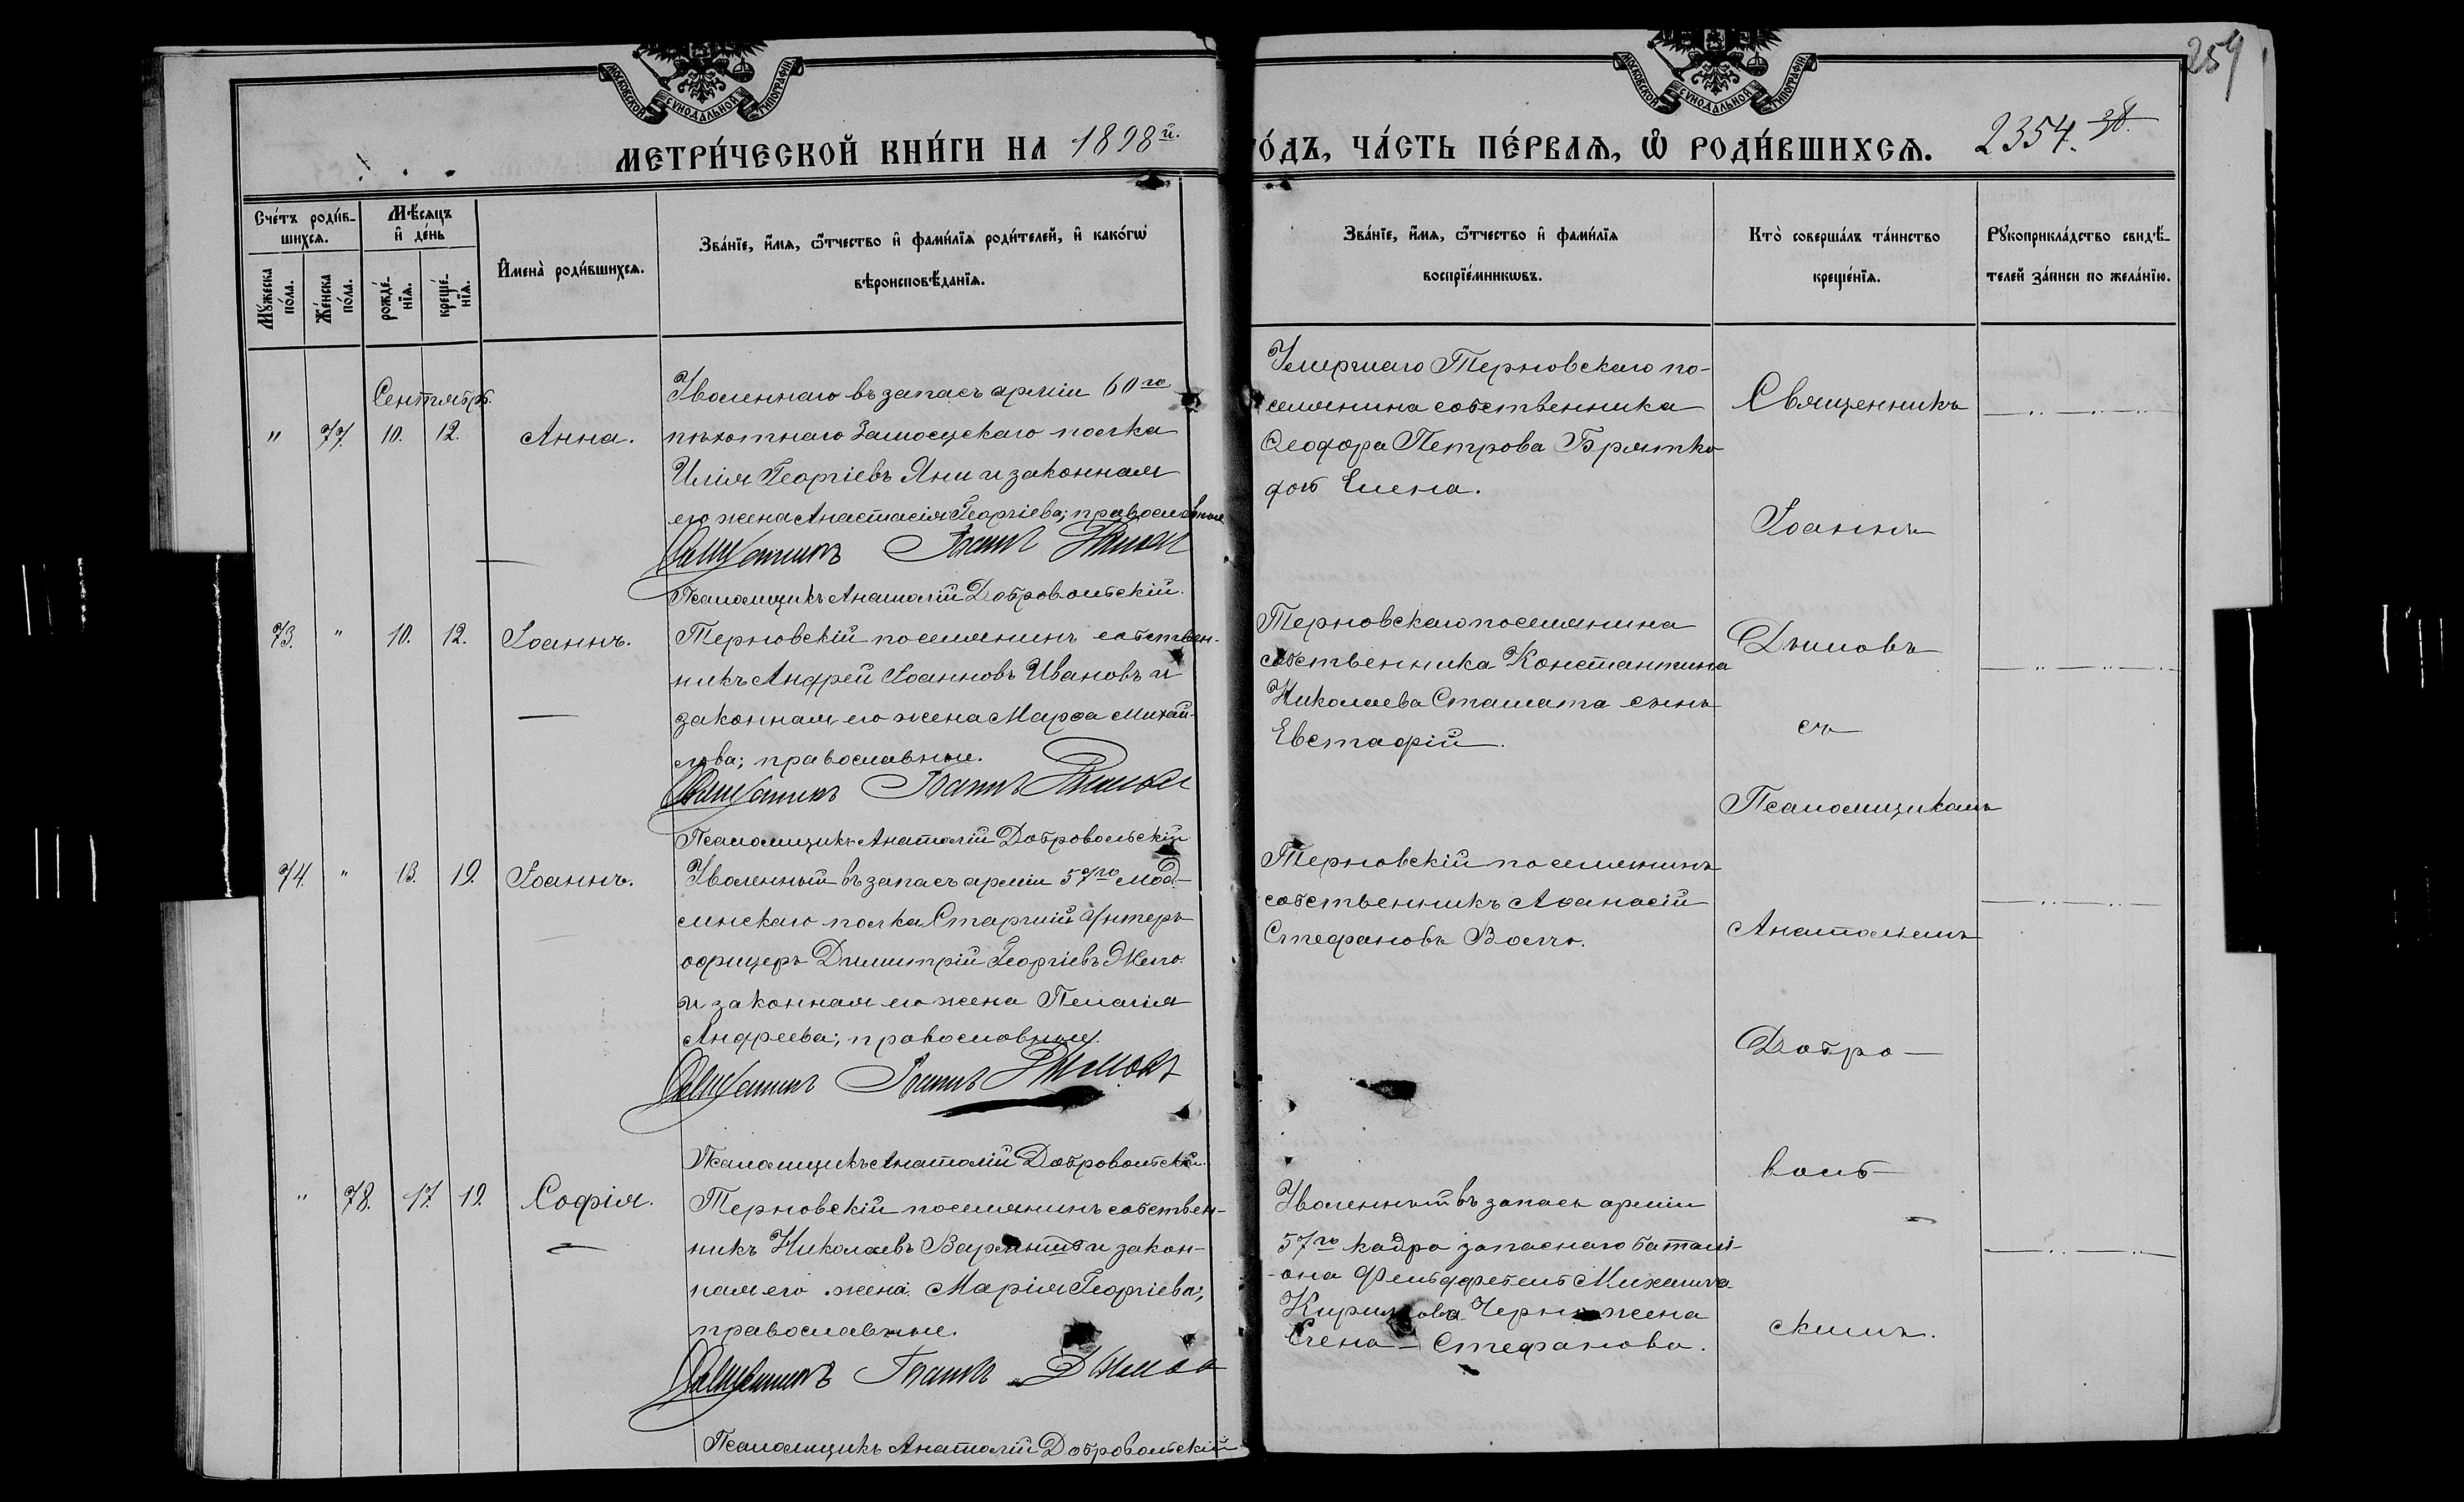 259
МОСКОВСКОЙ СУНОДАЛЬНОЙ ТИПОГРАФІИ
МОСКОВСКОЙ СУНОДАЛЬНОЙ ТИПОГРАФІИ
МЕТРИ́ЧЕСКОЙ КНИ́ГИ НА 1898й.
ГО́ДЪ, ЧА́СТЬ ПЕ́РВАѦ, Ѽ РОДИ́ВШИХСѦ. 2354.
Сче́тъ роди́в-
шихсѧ.
Мꙋ́жеска
по́ла.
Же́нска
по́ла.
Мѣ́сѧцъ
и҆ де́нь
рожде́-
нїѧ.
креще́-
нїѧ.
И҆мена̀ роди́вшихсѧ.
Зва́нїе, и҆́мѧ, ѻ҆́тчество и҆ фами́лїѧ роди́телей, и҆ како́гѡ
вѣроисповѣ́данїѧ.
Зва́нїе, и҆́мѧ, ѻ҆́тчество и҆ фами́лїѧ
воспрїе́мникѡвъ.
Кто̀ соверша́лъ та́инство
креще́нїѧ.
Рꙋкоприкла́дство свидѣ́-
телей за́писи по жела́нїю.
Сентябрь.
" 77. 10. 12. Анна.
Уволеннаго въ запасъ арміи 60го
пѣхотнаго Замосцскаго полка
Илія Георгіевъ Яни и законная
его жена Анастасія Георгіева; православные
Священникъ Іоаннъ Дымовъ
Псаломщикъ Анатолій Добровольскій.
Умершаго Терновскаго по-
селянина собственника
Ѳеодора Петрова
Елена.
73. " 10. 12. Іоаннъ.
Терновскій поселянинъ собствен-
никъ Андрей Іоанновъ Ивановъ и
законная его жена Марѳа Михай-
лова; православные.
Священникъ Іоаннъ Дымовъ
Псаломщикъ Анатолій Добровольскій
Терновскаго поселянина
собственника Константина
Николаева Стамата сынъ
Евстафій.
74. " 13. 19. Іоаннъ.
Уволенный въ запасъ арміи 57го Мод-
линскаго полка Старшій Унтеръ
офицеръ Димитрій Георгіевъ Жело
и законная его жена Пелагія
Андреева; православные.
Священникъ Іоаннъ Дымовъ
Псаломщикъ Анатолій Добровольскій.
Терновскій поселянинъ
собственникъ Аѳанасій
Стефановъ Волчо.
" 78. 17. 19. Софія.
Терновскій поселянинъ собствен-
никъ Николаевъ и закон-
ная его жена Марія Георгіева;
православные.
Священникъ Іоаннъ Дымовъ
Псаломщикъ Анатолій Добровольскій
Уволенный въ запасъ арміи
57го кадра запаснаго баталі-
она Фельдфебель Михаила
Кирилова жена
Елена Стефанова.
Священникъ
Іоаннъ
Дымовъ
съ
Псаломщикомъ
Анатоліемъ
Добро-
воль-
скимъ.